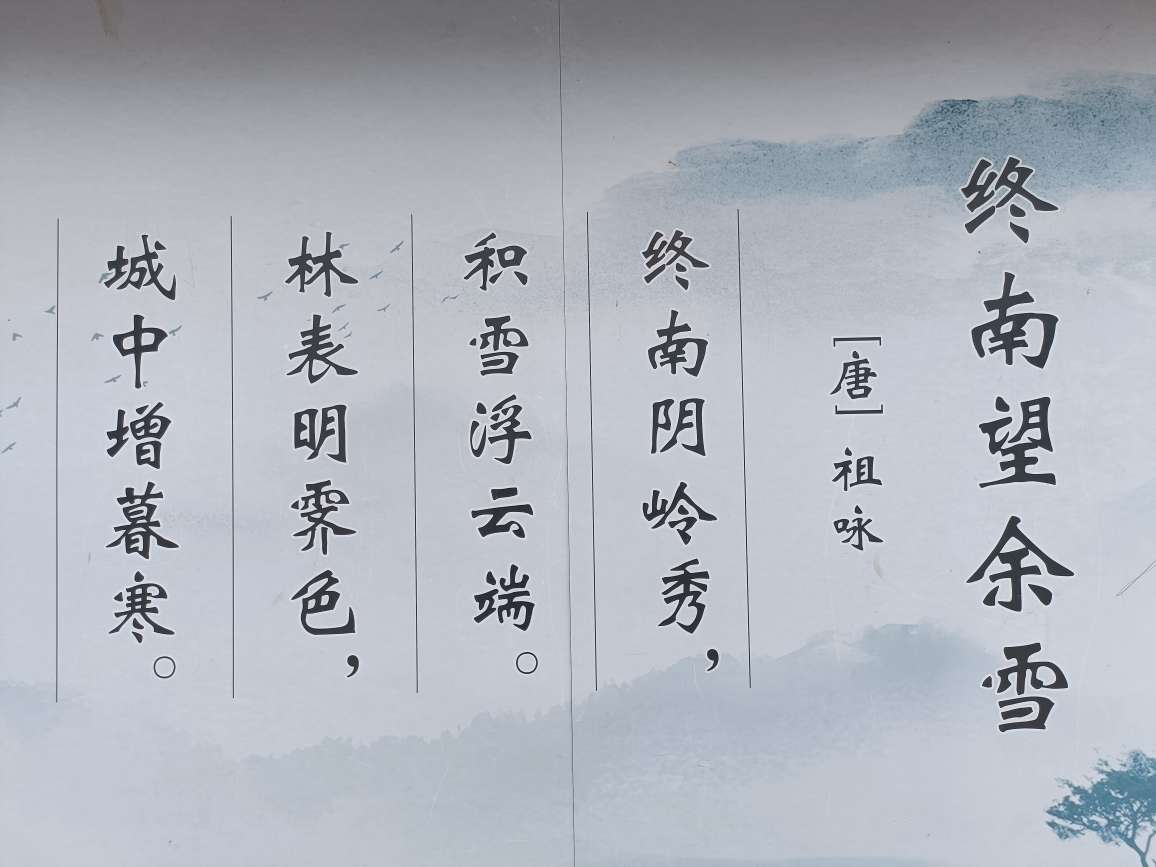 终南望余雪
［唐］祖咏
终南阴岭秀，
积雪浮云端。
林表明霁色，
城中增暮寒。